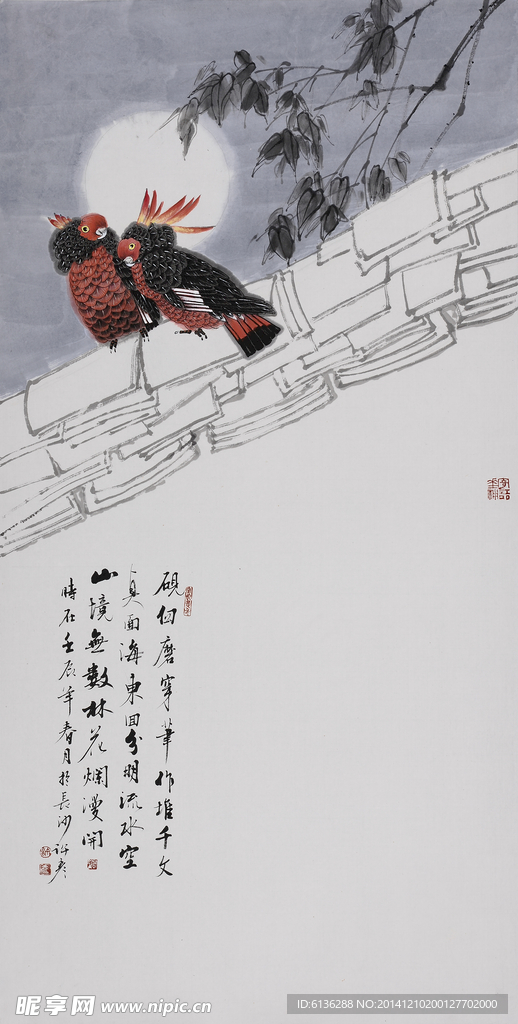 硯臼磨穿筆作堆千文
真面海東回分明流水空
山境無數林花爛漫開
時在壬辰年春月於長沙許彥
昵享网 www.nipic.cn
ID:6136288 NO:20141210200127702000